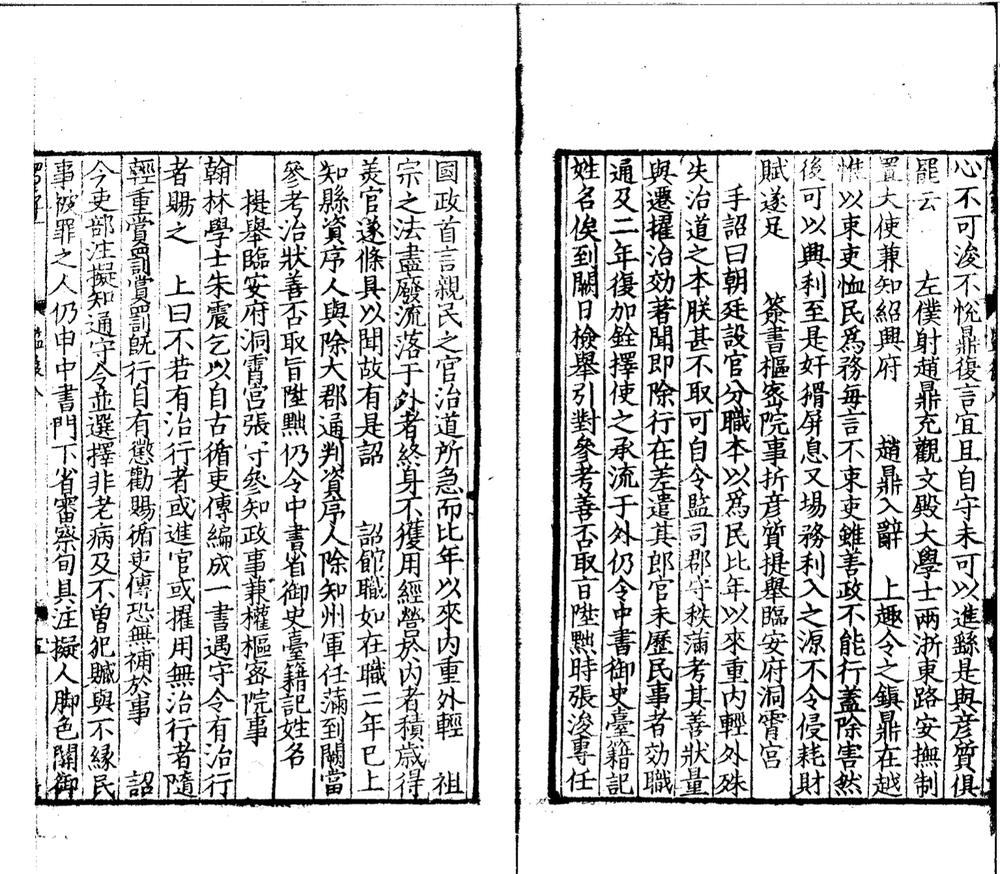 心不可浚不悅鼎復言宜且自守未可以進繇是與彦質俱
罷云　左僕射趙鼎充觀文殿大學士兩浙東路安撫制
置大使兼知紹興府　趙鼎入辭　上趣令之鎮鼎在越
惟以束吏恤民爲務每言不束吏雖善政不能行蓋除害然
後可以興利至是奸猾屏息又場務利入之源不令侵耗財
賦遂足　簽書樞密院事折彦質提舉臨安府洞霄宮
手詔曰朝廷設官分職本以爲民比年以來重內輕外殊
失治道之本朕甚不取可自今監司郡守秩滿考其善狀量
與遷擢治効著聞即除行在差遣其郎官未歷民事者効職
通及二年復加銓擇使之承流于外仍令中書御史臺籍記
姓名俟到闕日檢舉引對參考善否取旨陞黜時張浚專任
國政首言親民之官治道所急而比年以來內重外輕　祖
宗之法盡廢流落于外者終身不獲用經營於內者積歲得
美官遂條具以聞故有是詔　詔館職如在職二年已上
知縣資序人與除大郡通判資序人除知州軍任滿到闕當
參考治狀善否取旨陞黜仍令中書省御史臺籍記姓名
提舉臨安府洞霄宮張守參知政事兼權樞密院事
翰林學士朱震乞以自古循吏傳編成一書遇守令有治行
者賜之　上曰不若有治行者或進官或擢用無治行者隨
輕重賞罰賞罰旣行自有懲勸賜循吏傳恐無補於事　詔
今吏部注擬知通守令並選擇非老病及不曾犯贓與不緣民
事被罪之人仍申中書門下省審察旬具注擬人脚色關御